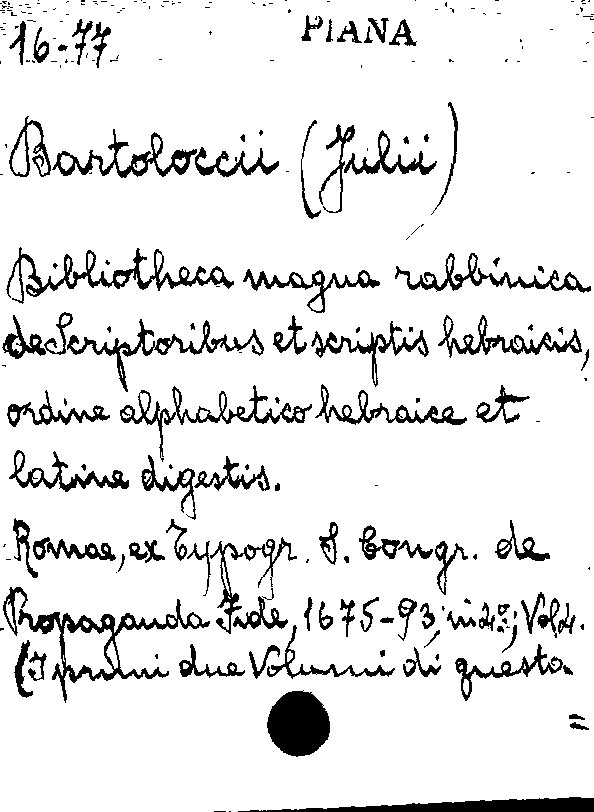 16-77 PIANA
Bartoloccii (Julii)
Bibliotheca magna rabbinica
de Scriptoribus et scriptis hebraicis,
ordine alphabetico hebraice et
latine digestis.
Romae, ex Typogr. S. Congr. de
Propaganda Fide, 1675-93, in 4º; Vol. 4.
(I primi due Volumi di questa
=